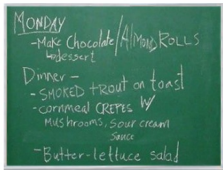 MONDAY
-Make Chocolate/AlMOND ROLLS
dessert
Dinner-
-SMOKED trout on toast
-cornmeal CREPES W/
Mushrooms, Sour cream
Sauce
-Butter-lettuce salad